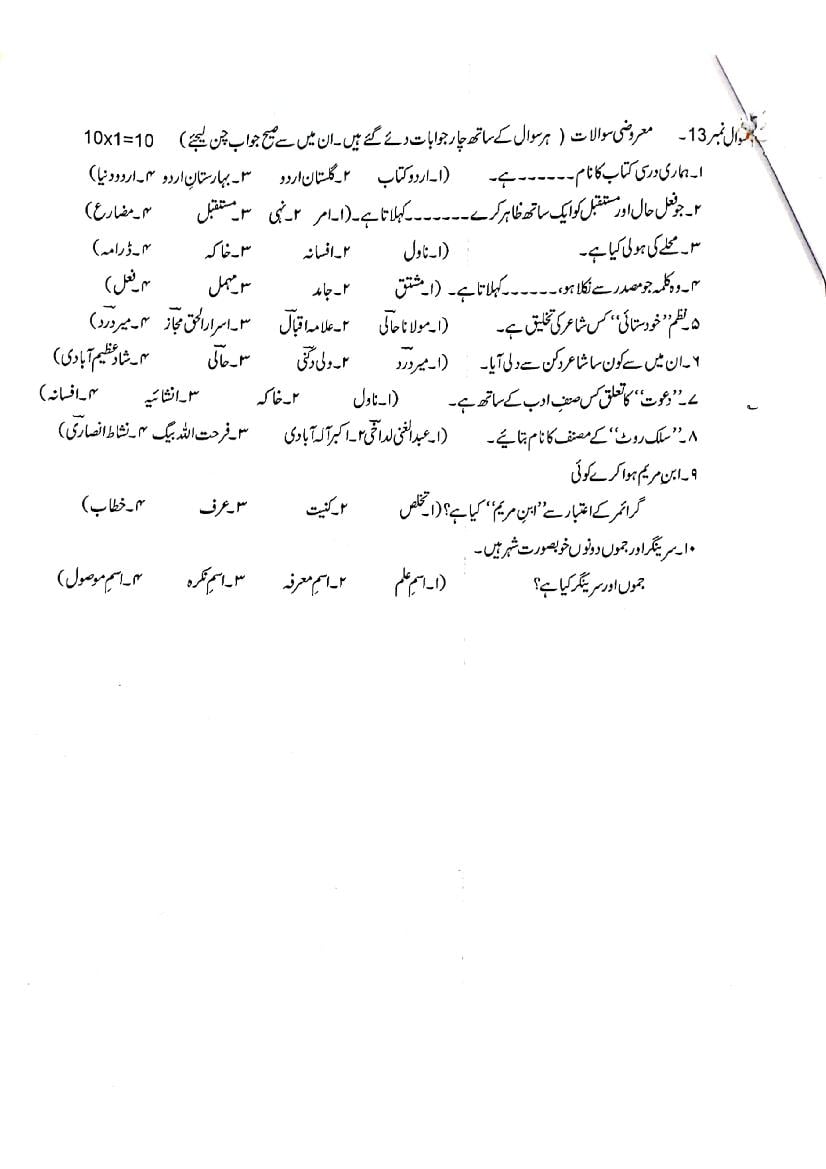 سوال نمبر 13۔ معروضی سوالات ( ہر سوال کے ساتھ چار جوابات دئے گئے ہیں۔ ان میں سے صحیح جواب چن لیجئے ) 10x1=10
۱۔ ہماری درسی کتاب کا نام ۔۔۔۔۔۔ ہے۔ (۱۔ اردو کتاب ۲۔ گلستان اردو ۳۔ بہارستانِ اردو ۴۔ اردو دنیا)
۲۔ جو فعل حال اور مستقبل کو ایک ساتھ ظاہر کرے ۔۔۔۔۔۔۔ کہلاتا ہے۔ (۱۔ امر ۲۔ نہی ۳۔ مستقبل ۴۔ مضارع)
۳۔ محلے کی ہولی کیا ہے۔ (۱۔ ناول ۲۔ افسانہ ۳۔ خاکہ ۴۔ ڈرامہ)
۴۔ وہ کلمہ جو مصدر سے نکلا ہو، ۔۔۔۔۔۔ کہلاتا ہے۔ (۱۔ مشتق ۲۔ جامد ۳۔ مہمل ۴۔ فعل)
۵۔ نظم ”خودستائی“ کس شاعر کی تخلیق ہے۔ (۱۔ مولانا حالی ۲۔ علامہ اقبال ۳۔ اسرارالحق مجاز ۴۔ میر درد)
۶۔ ان میں سے کون سا شاعر دکن سے دلی آیا۔ (۱۔ میر درد ۲۔ ولی دکنی ۳۔ حالی ۴۔ شاد عظیم آبادی)
۷۔ ”دعوت“ کا تعلق کس صنفِ ادب کے ساتھ ہے۔ (۱۔ ناول ۲۔ خاکہ ۳۔ انشائیہ ۴۔ افسانہ)
۸۔ ”سلک روٹ“ کے مصنف کا نام بتائیے۔ (۱۔ عبدالغنی لداخی ۲۔ اکبر آلہ آبادی ۳۔ فرحت اللہ بیگ ۴۔ نشاط انصاری)
۹۔ ابنِ مریم ہوا کرے کوئی
گرائمر کے اعتبار سے ”ابنِ مریم“ کیا ہے؟ (۱۔ تخلص ۲۔ کنیت ۳۔ عرف ۴۔ خطاب)
۱۰۔ سرینگر اور جموں دونوں خوبصورت شہر ہیں۔
جموں اور سرینگر کیا ہے؟ (۱۔ اسمِ علم ۲۔ اسمِ معرفہ ۳۔ اسمِ نکرہ ۴۔ اسمِ موصول)